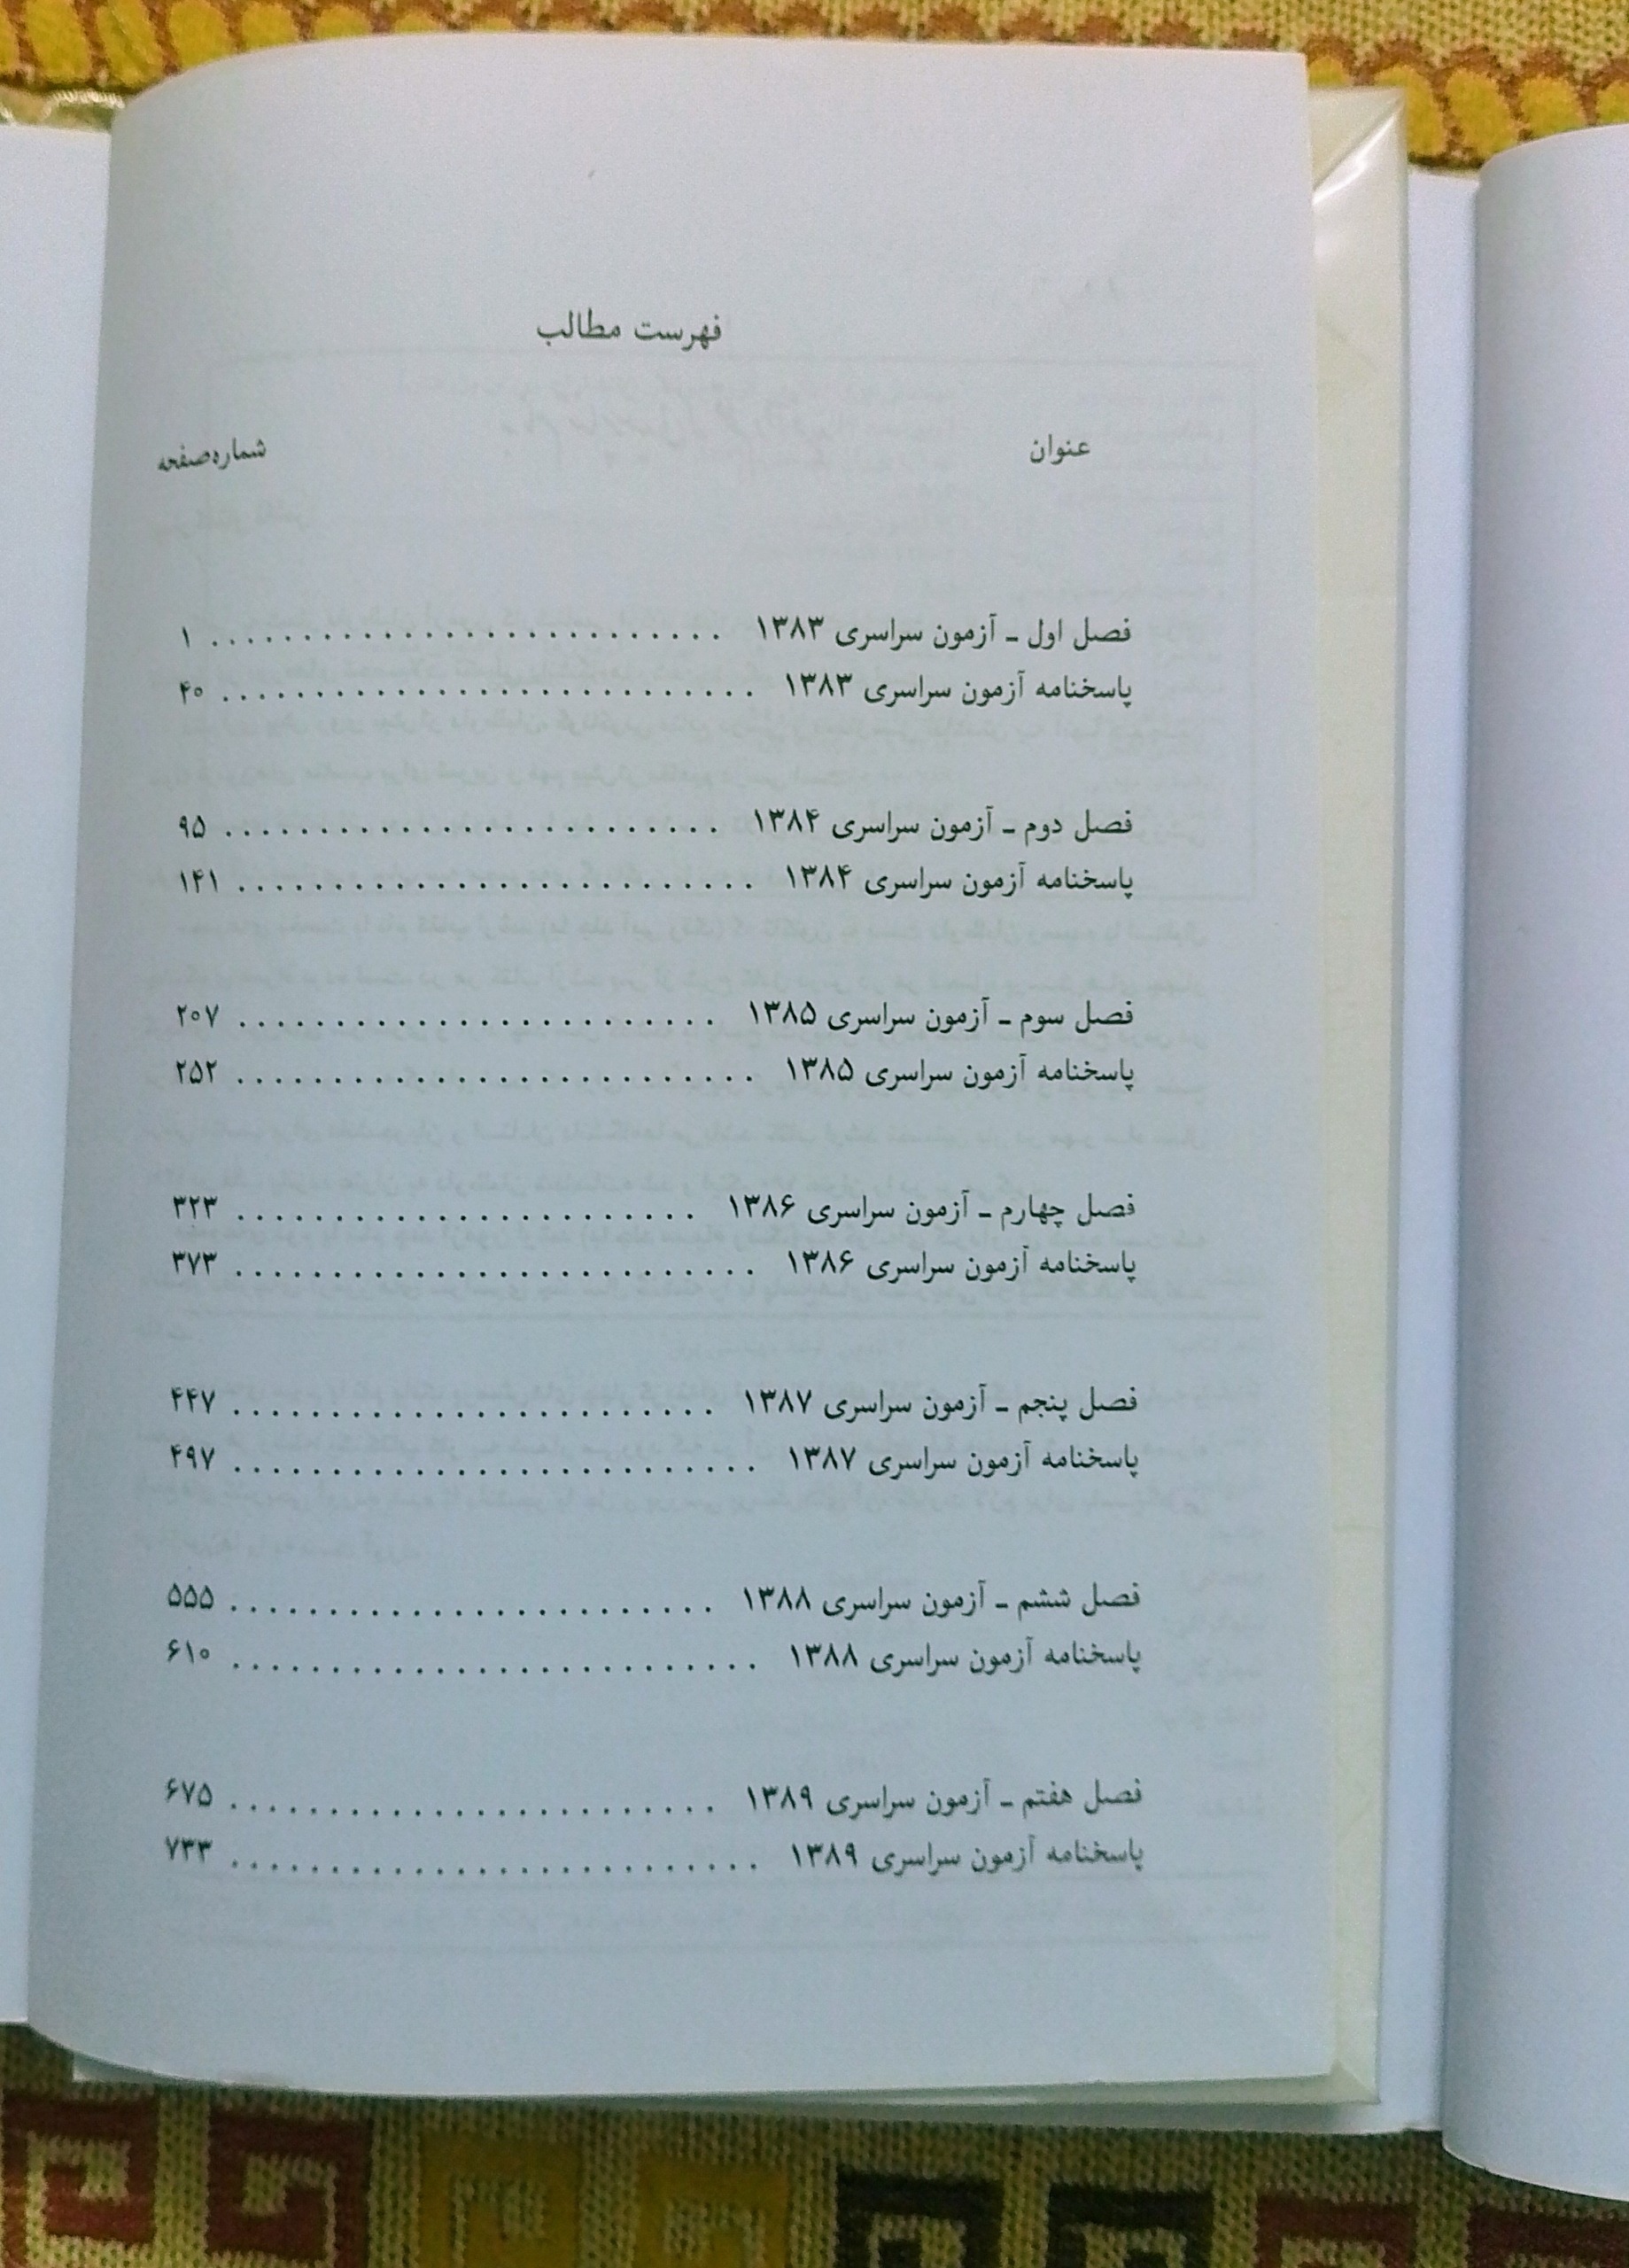 فهرست مطالب
عنوان شماره‌صفحه
فصل اول ـ آزمون سراسری ۱۳۸۳ . . . . . . . . . . . . . . . . . . . . . . . . . ۱
پاسخنامه آزمون سراسری ۱۳۸۳ . . . . . . . . . . . . . . . . . . . . . . . . . ۴۰
فصل دوم ـ آزمون سراسری ۱۳۸۴ . . . . . . . . . . . . . . . . . . . . . . . . . ۹۵
پاسخنامه آزمون سراسری ۱۳۸۴ . . . . . . . . . . . . . . . . . . . . . . . . . ۱۴۱
فصل سوم ـ آزمون سراسری ۱۳۸۵ . . . . . . . . . . . . . . . . . . . . . . . . . ۲۰۷
پاسخنامه آزمون سراسری ۱۳۸۵ . . . . . . . . . . . . . . . . . . . . . . . . . ۲۵۲
فصل چهارم ـ آزمون سراسری ۱۳۸۶ . . . . . . . . . . . . . . . . . . . . . . . . . ۳۲۳
پاسخنامه آزمون سراسری ۱۳۸۶ . . . . . . . . . . . . . . . . . . . . . . . . . ۳۷۳
فصل پنجم ـ آزمون سراسری ۱۳۸۷ . . . . . . . . . . . . . . . . . . . . . . . . . ۴۴۷
پاسخنامه آزمون سراسری ۱۳۸۷ . . . . . . . . . . . . . . . . . . . . . . . . . ۴۹۷
فصل ششم ـ آزمون سراسری ۱۳۸۸ . . . . . . . . . . . . . . . . . . . . . . . . . ۵۵۵
پاسخنامه آزمون سراسری ۱۳۸۸ . . . . . . . . . . . . . . . . . . . . . . . . . ۶۱۰
فصل هفتم ـ آزمون سراسری ۱۳۸۹ . . . . . . . . . . . . . . . . . . . . . . . . . ۶۷۵
پاسخنامه آزمون سراسری ۱۳۸۹ . . . . . . . . . . . . . . . . . . . . . . . . . ۷۳۳